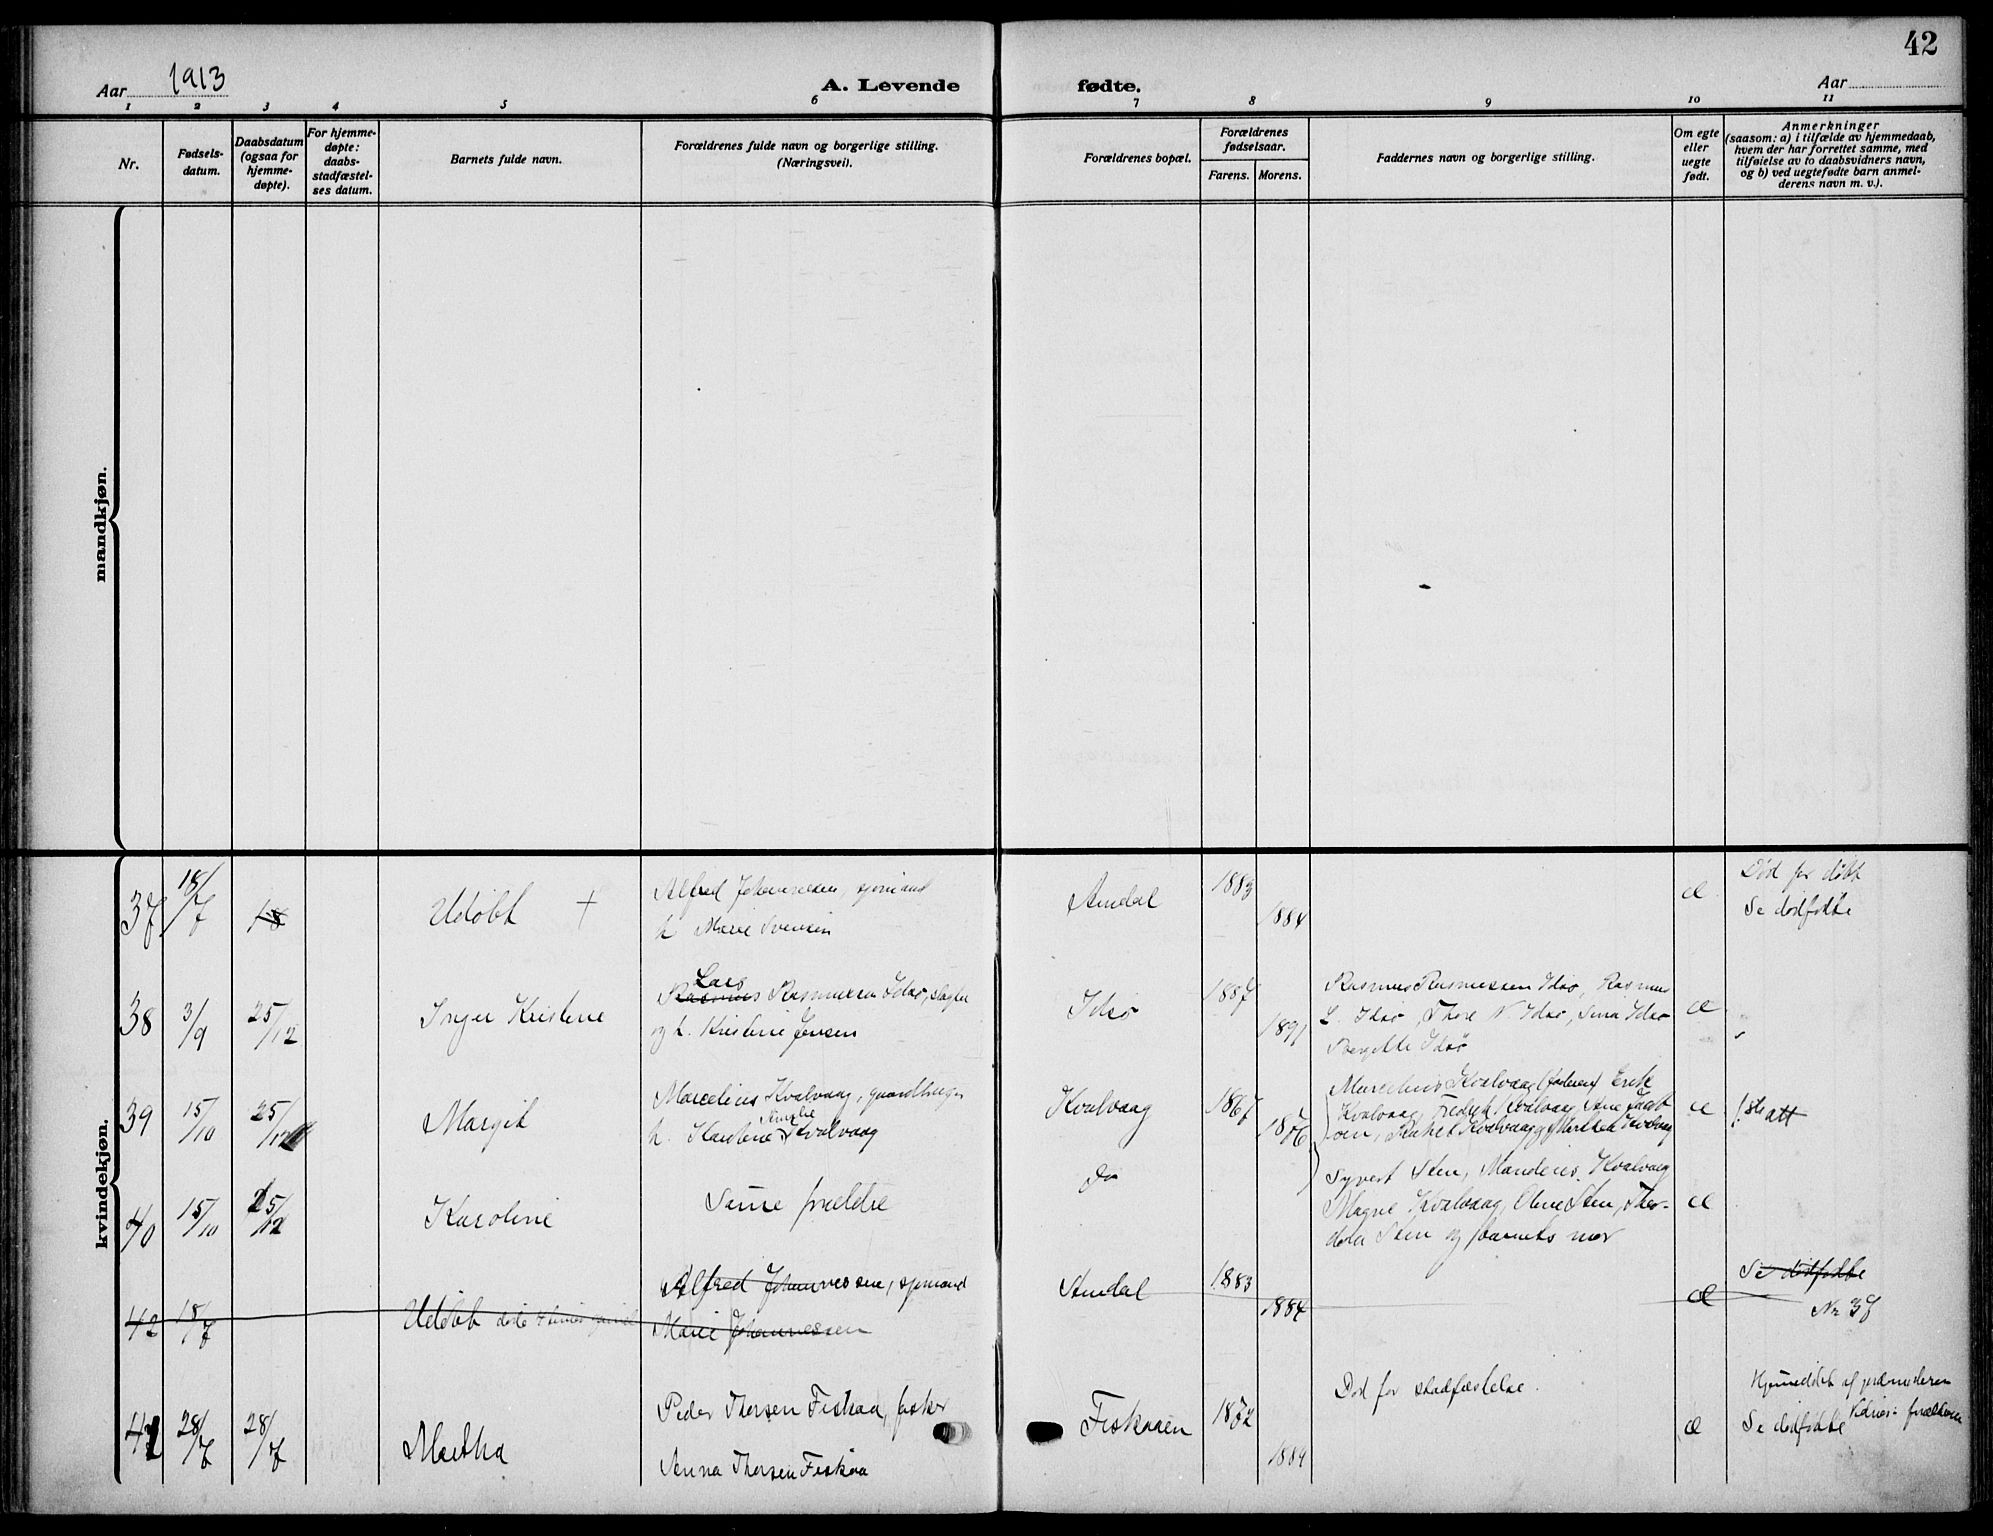 42
Aar 1913
A. Levende fødte.
Aar
1 2 3 4 5 6 7 8 9 10 11
Nr.
Fødsels-
datum.
Daabsdatum
(ogsaa for
hjemme-
døpte).
For hjemme-
døpte:
daabs-
stadfæstel-
ses datum.
Barnets fulde navn.
Forældrenes fulde navn og borgerlige stilling.
(Næringsvei).
Forældrenes bopæl.
Forældrenes
fødselsaar.
Farens. Morens.
Faddernes navn og borgerlige stilling.
Om egte
eller
uegte
født.
Anmerkninger
(saasom: a) i tilfælde av hjemmedaab,
hvem der har forrettet samme, med
tilføielse av to daabsvidners navn,
og b) ved uegtefødte barn anmel-
derens navn m. v.).
mandkjøn.
kvindekjøn.
37 18/7 18 Udöbt + Alfred Johannessen, sjömand
h. Marie Svensen
Amdal 1883 1884 æ
Död før döbt
Se dödfødte
38 3/9 25/12 Inger Kristine
Lars
Rasmus Rasmussen Idsø, slagter
og h. Kristine Jensen
Idsø 1887 1891
Rasmus Rasmussen Idsø, Rasmus
L. Idsø, Thore N. Idsø, Sina Idsø
Bergitte Idsø
æ
39 15/10 25/12 Margit
Marcelius Kvalvaag, gaardbruger
h. Karoline Amalie Kvalvaag
Kvalvaag 1867 1876
Marcelius Kvalvaag (faderen) Erik
Kvalvaag, Fredrik Kvalvaag, Ane
Rakel Kvalvaag, Marthea Kvalvaag
æ
40 15/10 25/12 Karoline
Samme forældre
Do
Syvert Sten, Mandius Kvalvaag
Magne Kvalvaag, Oline Sten, Theo-
dora Sten og barnets mor
æ
42 18/7 Udöbt
Alfred Johannessen, sjömand
Marie Johannessen
Amdal 1883 1884 æ
Se dödfødte
Nr 37
41 28/7 28/7 Martha
Peder Thorsen Fiskaa, fisker
Anna Thorsen Fiskaa
Fiskaaen 1872 1884
Död før stadfæstelse.
æ
Hjemmedöbt af jordmoderen
Vidner: forældrene
Se dödfødte